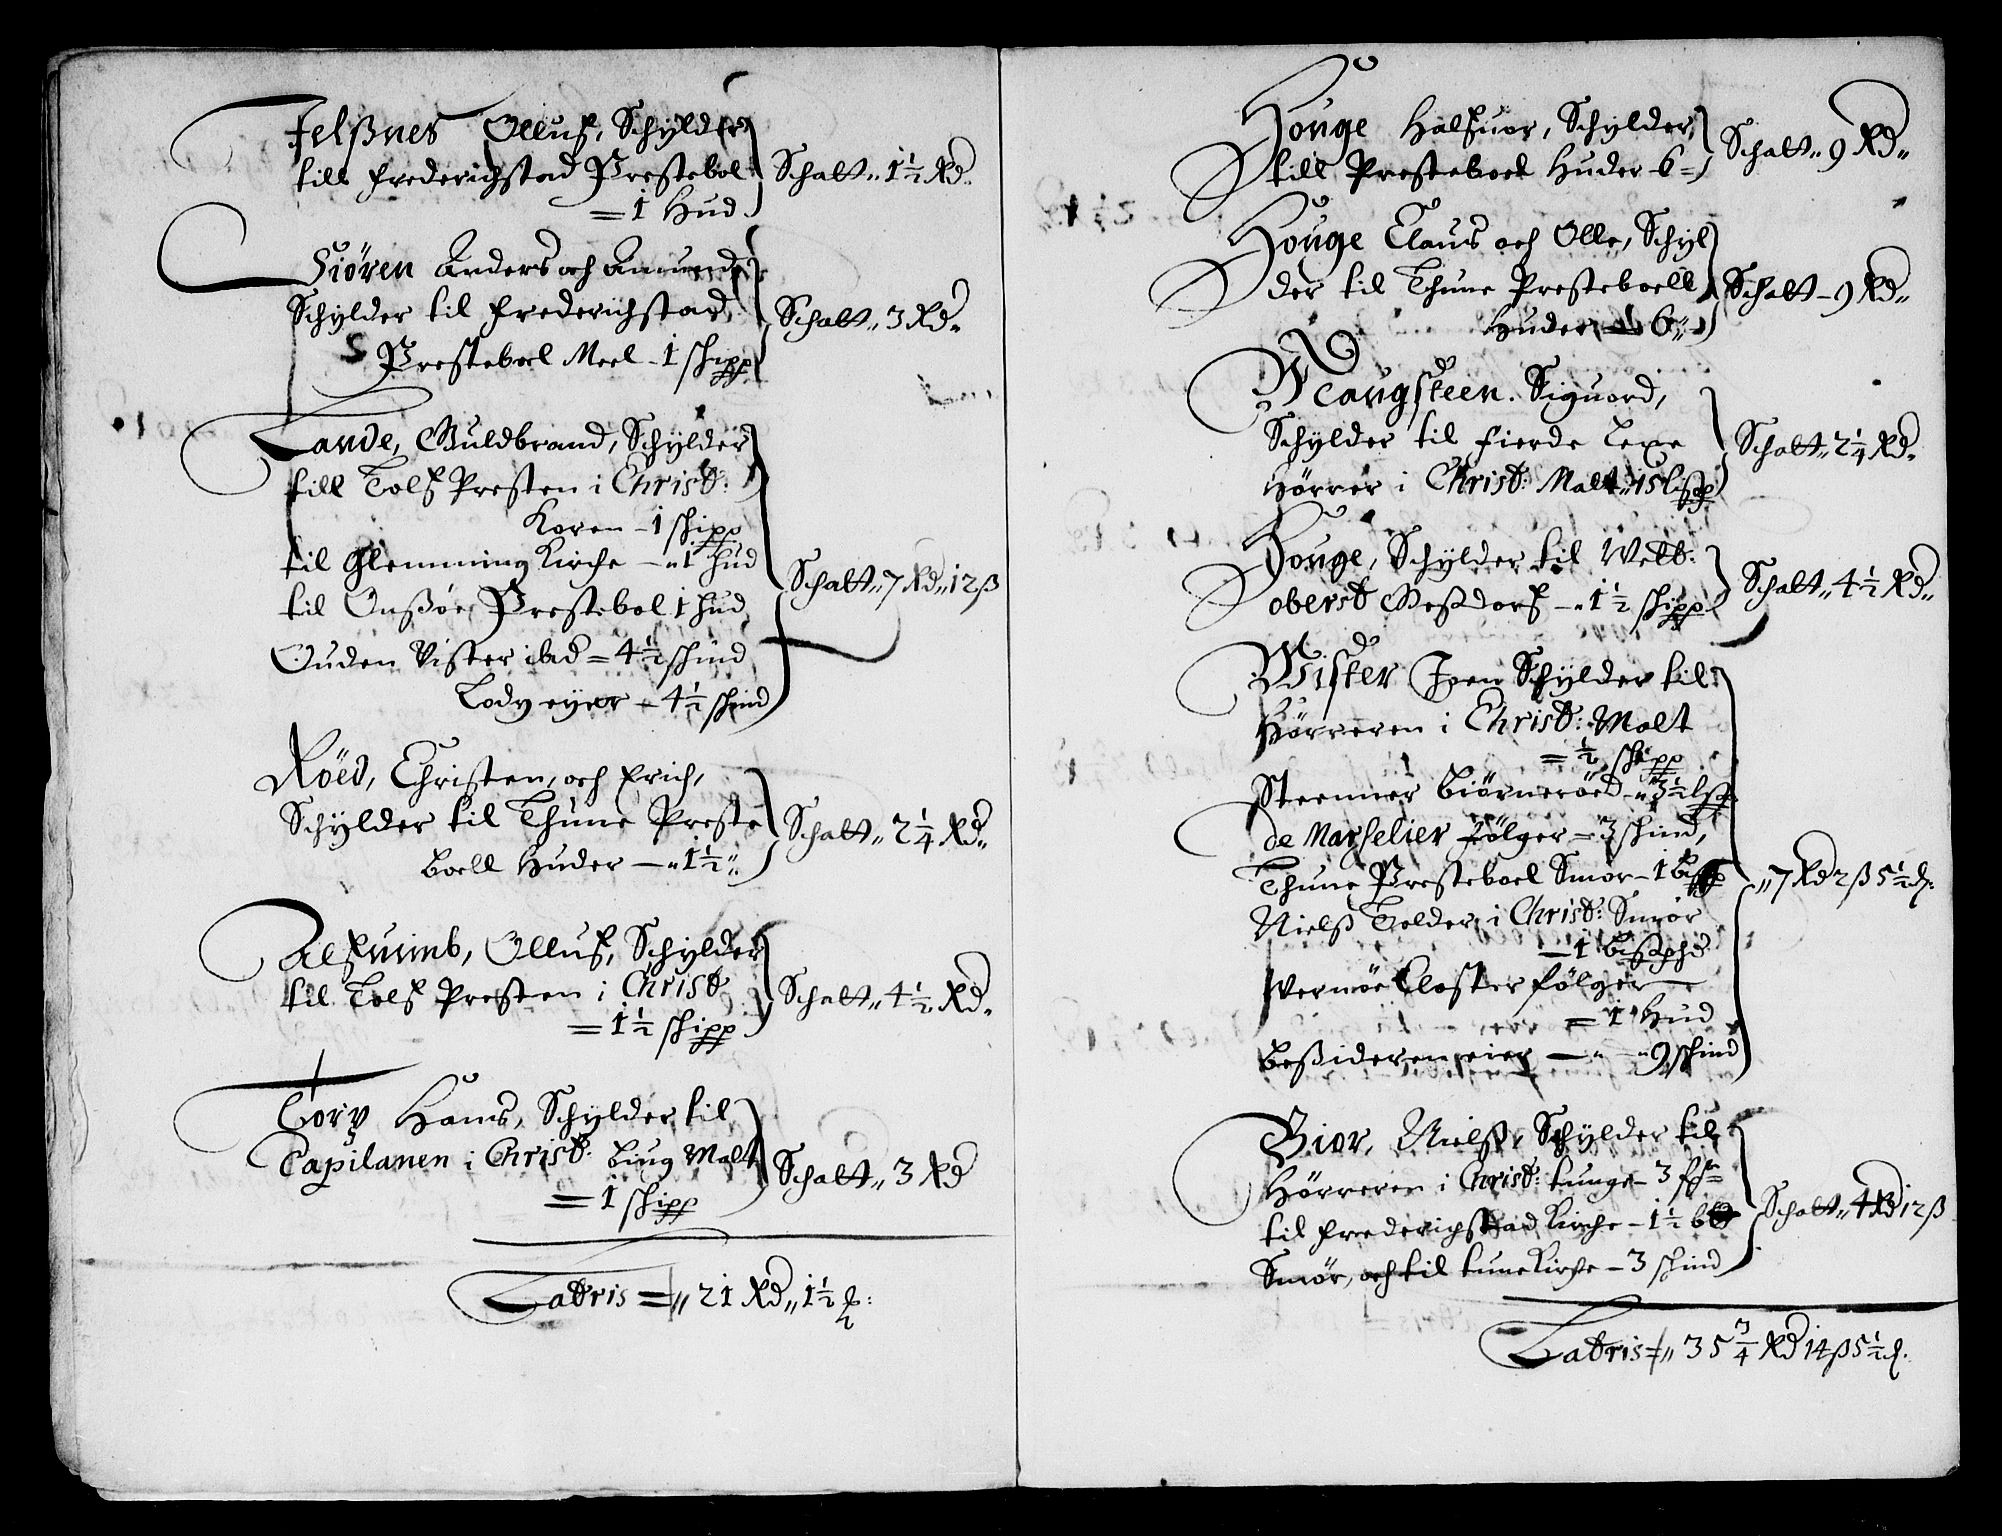 Felßnes Olluf, Schylder
till frederichstad Prestebol
= 1 Hud
Schatt„ 1½ Rd„
Siören Anders och Amund
Schylder til frederichstad
Presteboel Meel - 1 schipp
Schatt„ 3 Rd„
Lande, Guldbrand, Schylder
till Tolf Presten i Christ:
Koren - 1 schipp
til Glemming Kirche -„ 1 hud
til Onßøe Prestebol 1 hud
Ouden Vister ibid = 4½ schind
Lody eyer - 4½ schind
Schatt„ 7 Rd„ 12 ß
Röed, Christen, och Erich,
Schylder til Thune Preste
boell Huder -„ 1½„
Schatt„ 2¼ Rd„
Alfuimb, Olluf, Schylder
til Tolf Presten i Christ
= 1½ schipp
Schatt„ 4½ Rd„
Torp Hans, Schylder til
Capilanen i Christ: biug Malt
= 1 schipp
Schatt„ 3 Rd
Latris =„ 21 Rd„ 1½ ß:
Houge Halfuor, Schylder
till Presteboel Huder 6 =
Schatt„ 9 Rd„
Houge Claus och Olle, Schyl
der til Thune Presteboell
Huder 6„
Schatt - 9 Rd„
Haugsteen. Siguord,
Schylder til fierde Lexe
Hörrer i Christ: Malt„ 15 lispd
Schatt„ 2¼ Rd„
Houge, Schylder til Welb:
oberst Meßdorf -„ 1½ schipp
Schatt„ 4½ Rd„
Wister Joen Schylder til
Hörreren i Christ: Malt
= ½ schipp
Steenner Biörneröed -„ 3½ lisp
de Marselier følger = 3 schind,
Thune Presteboel Smør - 1 bispd
Nielß Tolder i Christ: Smör
- 1 bißpd
Wernøe Closter følger
= 1 Hud
Beßideren eier -„ - „ 9 schind
„ 7 Rd 2 ß 5½ d:
Bior, Nielß, Schylder til
Hörreren i Christ: tunge - 3 ff
til frederichstad Kirche - 1½ b
Smør, och til tune Kirche - 3 schind
Schatt„ 4 Rd 12 ß
Latris =„ 35¾ Rd 14 ß 5½ d.